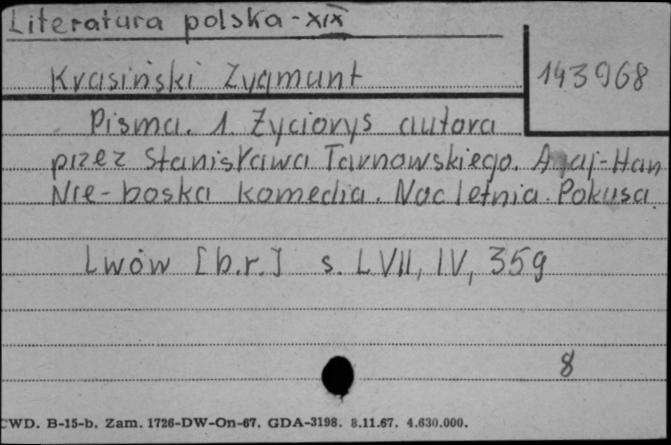 Literatura polska - XIX
Krasiński Zygmunt
143968
Pisma. 1. Życiorys autora
przez Stanisława Tarnowskiego. Agaj-Han
Nie-boska komedia. Noc letnia. Pokusa.
Lwów [b.r.] s. LVII, IV, 359
8
CWD. B-15-b. Zam. 1726-DW-On-67. GDA-3198. 8.11.67. 4.630.000.